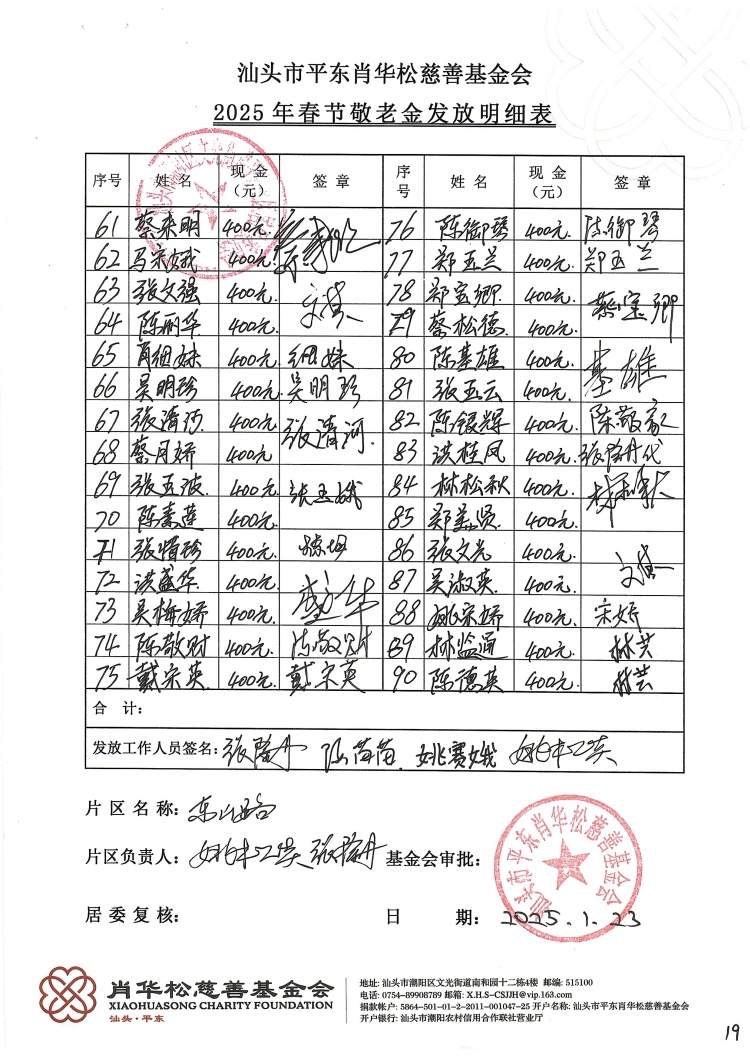 汕头市平东肖华松慈善基金会
2025年春节敬老金发放明细表
序号 姓名 现金（元） 签章 序号 姓名 现金（元） 签章
61 蔡来明 400元 76 陈御琴 400元 陈御琴
62 马宋娥 400元 77 郑玉兰 400元 郑玉兰
63 张文强 400元 78 郑宝卿 400元 蔡宝卿
64 陈丽华 400元 79 蔡松德 400元
65 肖细妹 400元 细妹 80 陈基雄 400元 基雄
66 吴明珍 400元 吴明珍 81 张玉云 400元
67 张清河 400元 张清河 82 陈银辉 400元
68 蔡月娇 400元 83 洪桂凤 400元
69 张玉波 400元 张玉娥 84 林松秋 400元
70 陈素莲 400元 85 郑美贤 400元
71 张惜珍 400元 86 张文光 400元
72 洪盛华 400元 盛华 87 吴淑英 400元
73 吴梅娇 400元 88 姚宋娇 400元 宋娇
74 陈敬财 400元 陈敬财 89 林监通 400元 林芸
75 戴宗英 400元 戴宗英 90 陈德英 400元 林芸
合计:
发放工作人员签名: 陈苗苗 姚赛娥
片区名称:
片区负责人: 基金会审批:
汕头市平东肖华松慈善基金会
居委复核: 日期: 2025.1.23
肖华松慈善基金会
XIAOHUASONG CHARITY FOUNDATION
汕头·平东
地址: 汕头市潮阳区文光街道南和园十二栋4楼 邮编: 515100
电话: 0754-89908789 邮箱: X.H.S-CSJJH@vip.163.com
捐款帐户: 5864-501-01-2-2011-001047-25 开户名称: 汕头市平东肖华松慈善基金会
开户银行: 汕头市潮阳农村信用合作联社营业厅
19